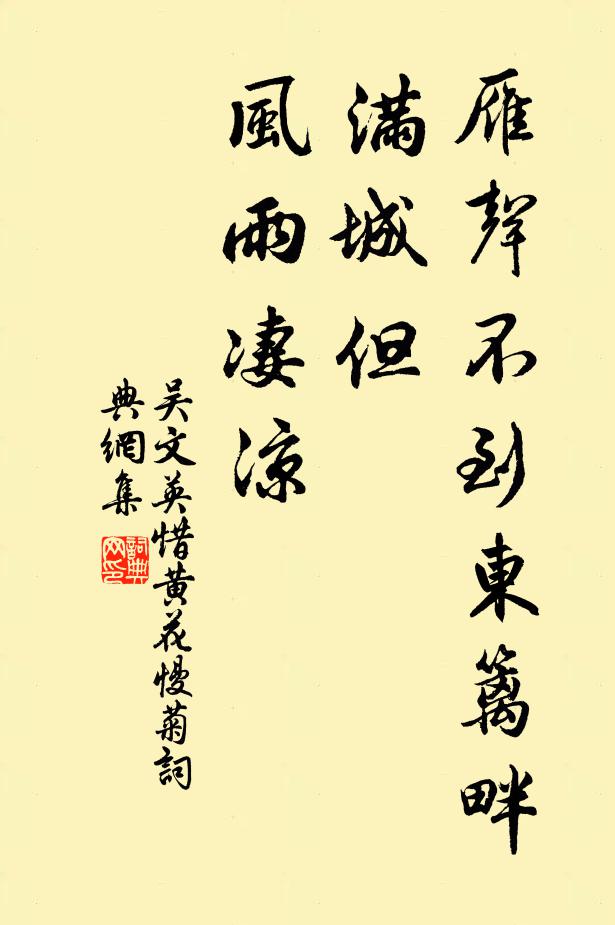 雁聲不到東籬畔
滿城但
風雨凄涼
吳文英惜黄花慢菊詞
典網集
詞典
网印